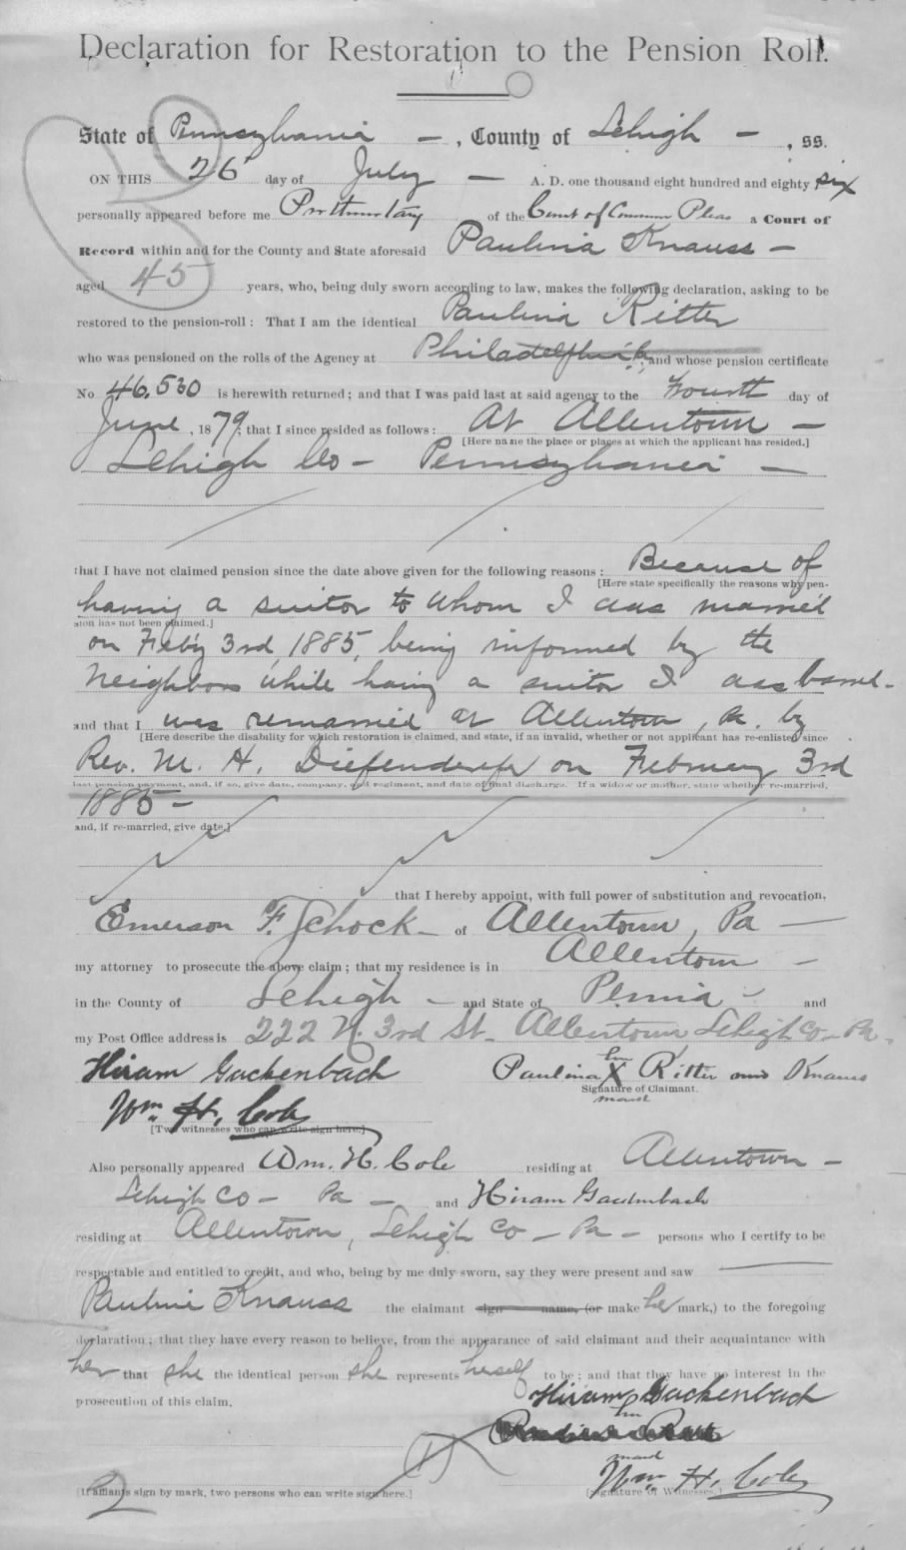 Declaration for Restoration to the Pension Roll.
State of Pennsylvania — , County of Lehigh — , ss.
ON THIS 26" day of July — A. D. one thousand eight hundred and eighty six
personally appeared before me Prothonotary of the Court of Common Pleas a Court of
Record within and for the County and State aforesaid Paulina Knauss —
aged 45 years, who, being duly sworn according to law, makes the following declaration, asking to be
restored to the pension-roll : That I am the identical Paulina Ritter
who was pensioned on the rolls of the Agency at Philadelphia , and whose pension certificate
No 46,530 is herewith returned ; and that I was paid last at said agency to the Fourth day of
June , 1879, that I since resided as follows : At Allentown —
[Here name the place or places at which the applicant has resided.]
Lehigh Co — Pennsylvania —
that I have not claimed pension since the date above given for the following reasons : Because of
[Here state specifically the reasons why pen-
having a suitor to whom I was married
sion has not been claimed.]
on Feb'y 3rd, 1885, being informed by the
Neighbors while having a suitor I was barred.
and that I was remarried at Allentown, Pa. by
[Here describe the disability for which restoration is claimed, and state, if an invalid, whether or not applicant has re-enlisted since
Rev. M. H. Diefenderfer on February 3rd
last pension payment, and, if so, give date, company, and regiment, and date of final discharge. If a widow or mother, state whether re-married,
1885 —
and, if re-married, give date.]
that I hereby appoint, with full power of substitution and revocation,
Emerson F. Schock — of Allentown, Pa —
my attorney to prosecute the above claim ; that my residence is in Allentown —
in the County of Lehigh — and State of Penna — and
my Post Office address is 222 N. 3rd St. Allentown Lehigh Co — Pa.
her
Hiram Gackenbach Paulina X Ritter now Knauss
Signature of Claimant.
mark
Wm. H. Cole
[Two witnesses who can write sign here.]
Also personally appeared Wm. H. Cole residing at Allentown —
Lehigh Co — Pa — and Hiram Gackenbach
residing at Allentown, Lehigh Co — Pa — persons who I certify to be
respectable and entitled to credit, and who, being by me duly sworn, say they were present and saw
Paulina Knauss the claimant sign name, (or make her mark,) to the foregoing
declaration ; that they have every reason to believe, from the appearance of said claimant and their acquaintance with
her that she the identical person she represents herself to be ; and that they have no interest in the
prosecution of this claim.
Hiram Gackenbach
her
mark
Wm. H. Cole
2
[If affiants sign by mark, two persons who can write sign here.] [Signature of Witnesses.]